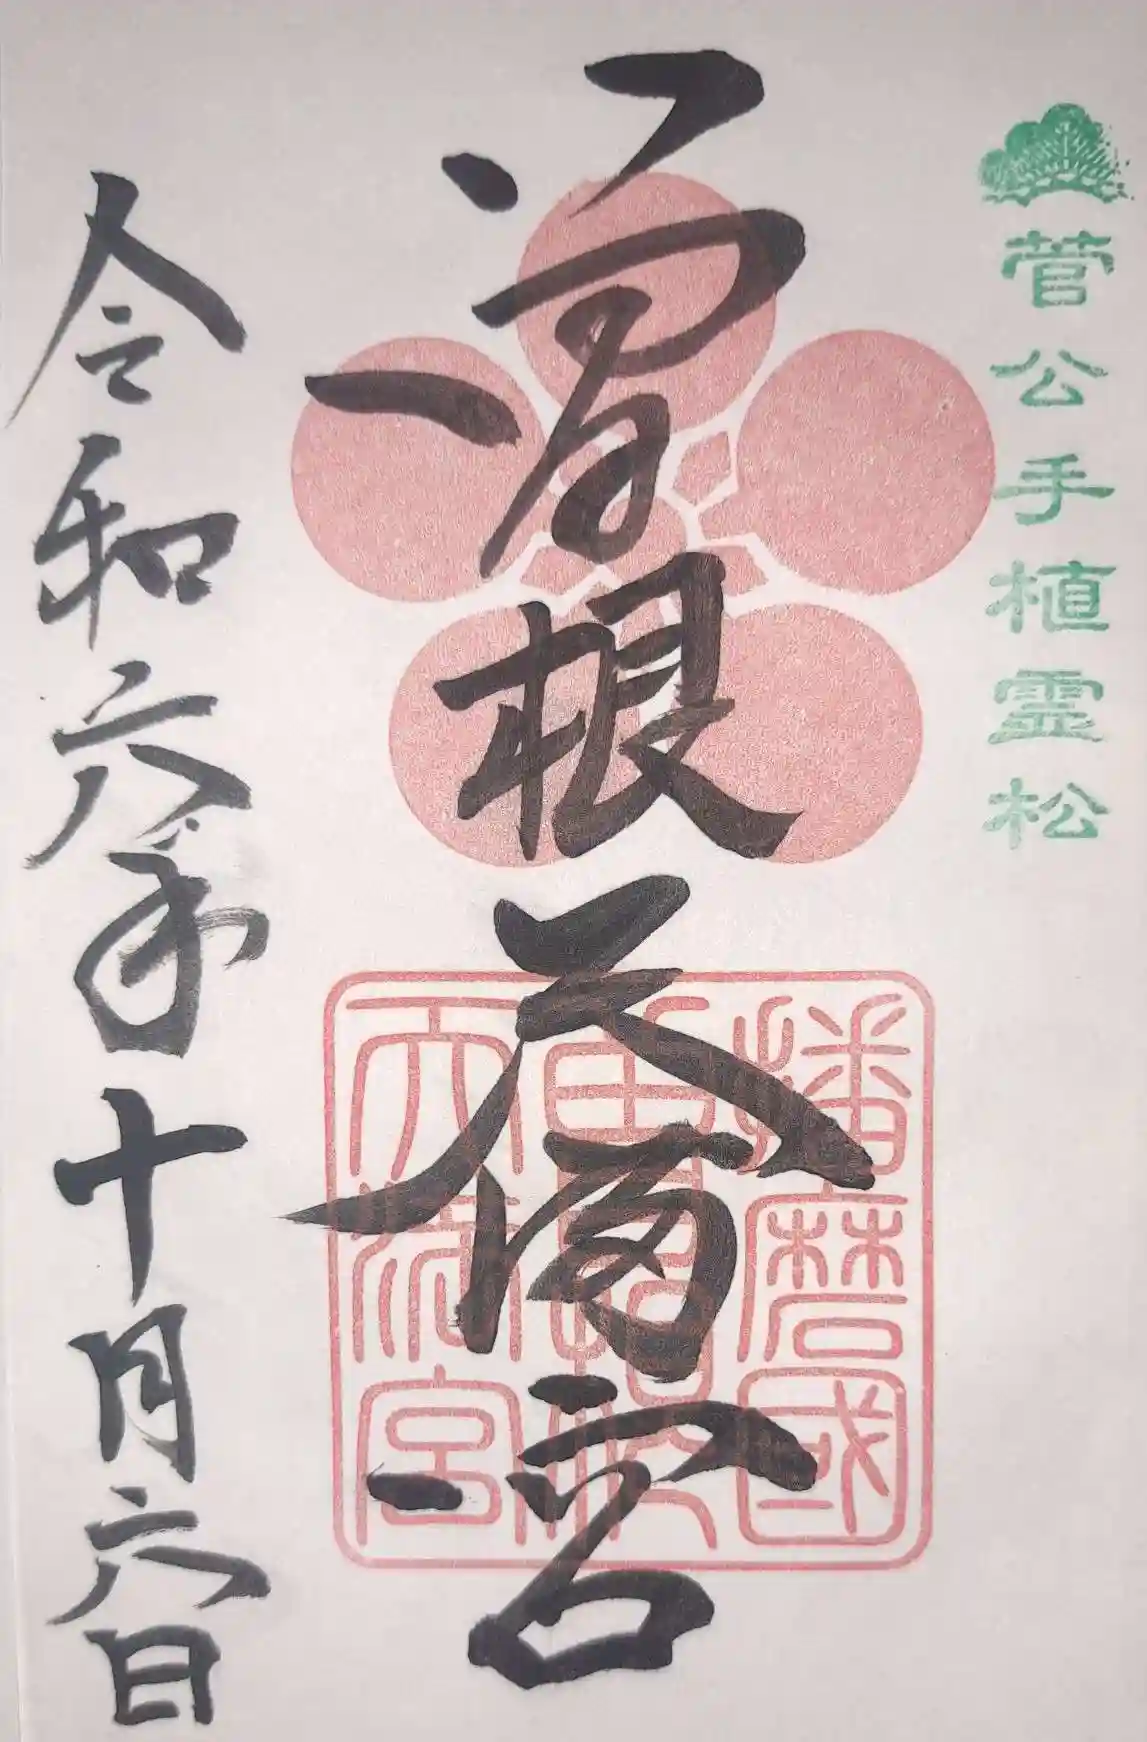 菅公手植霊松
曽根天満宮
播磨國
曽根社
天満宮
令和六年十月六日